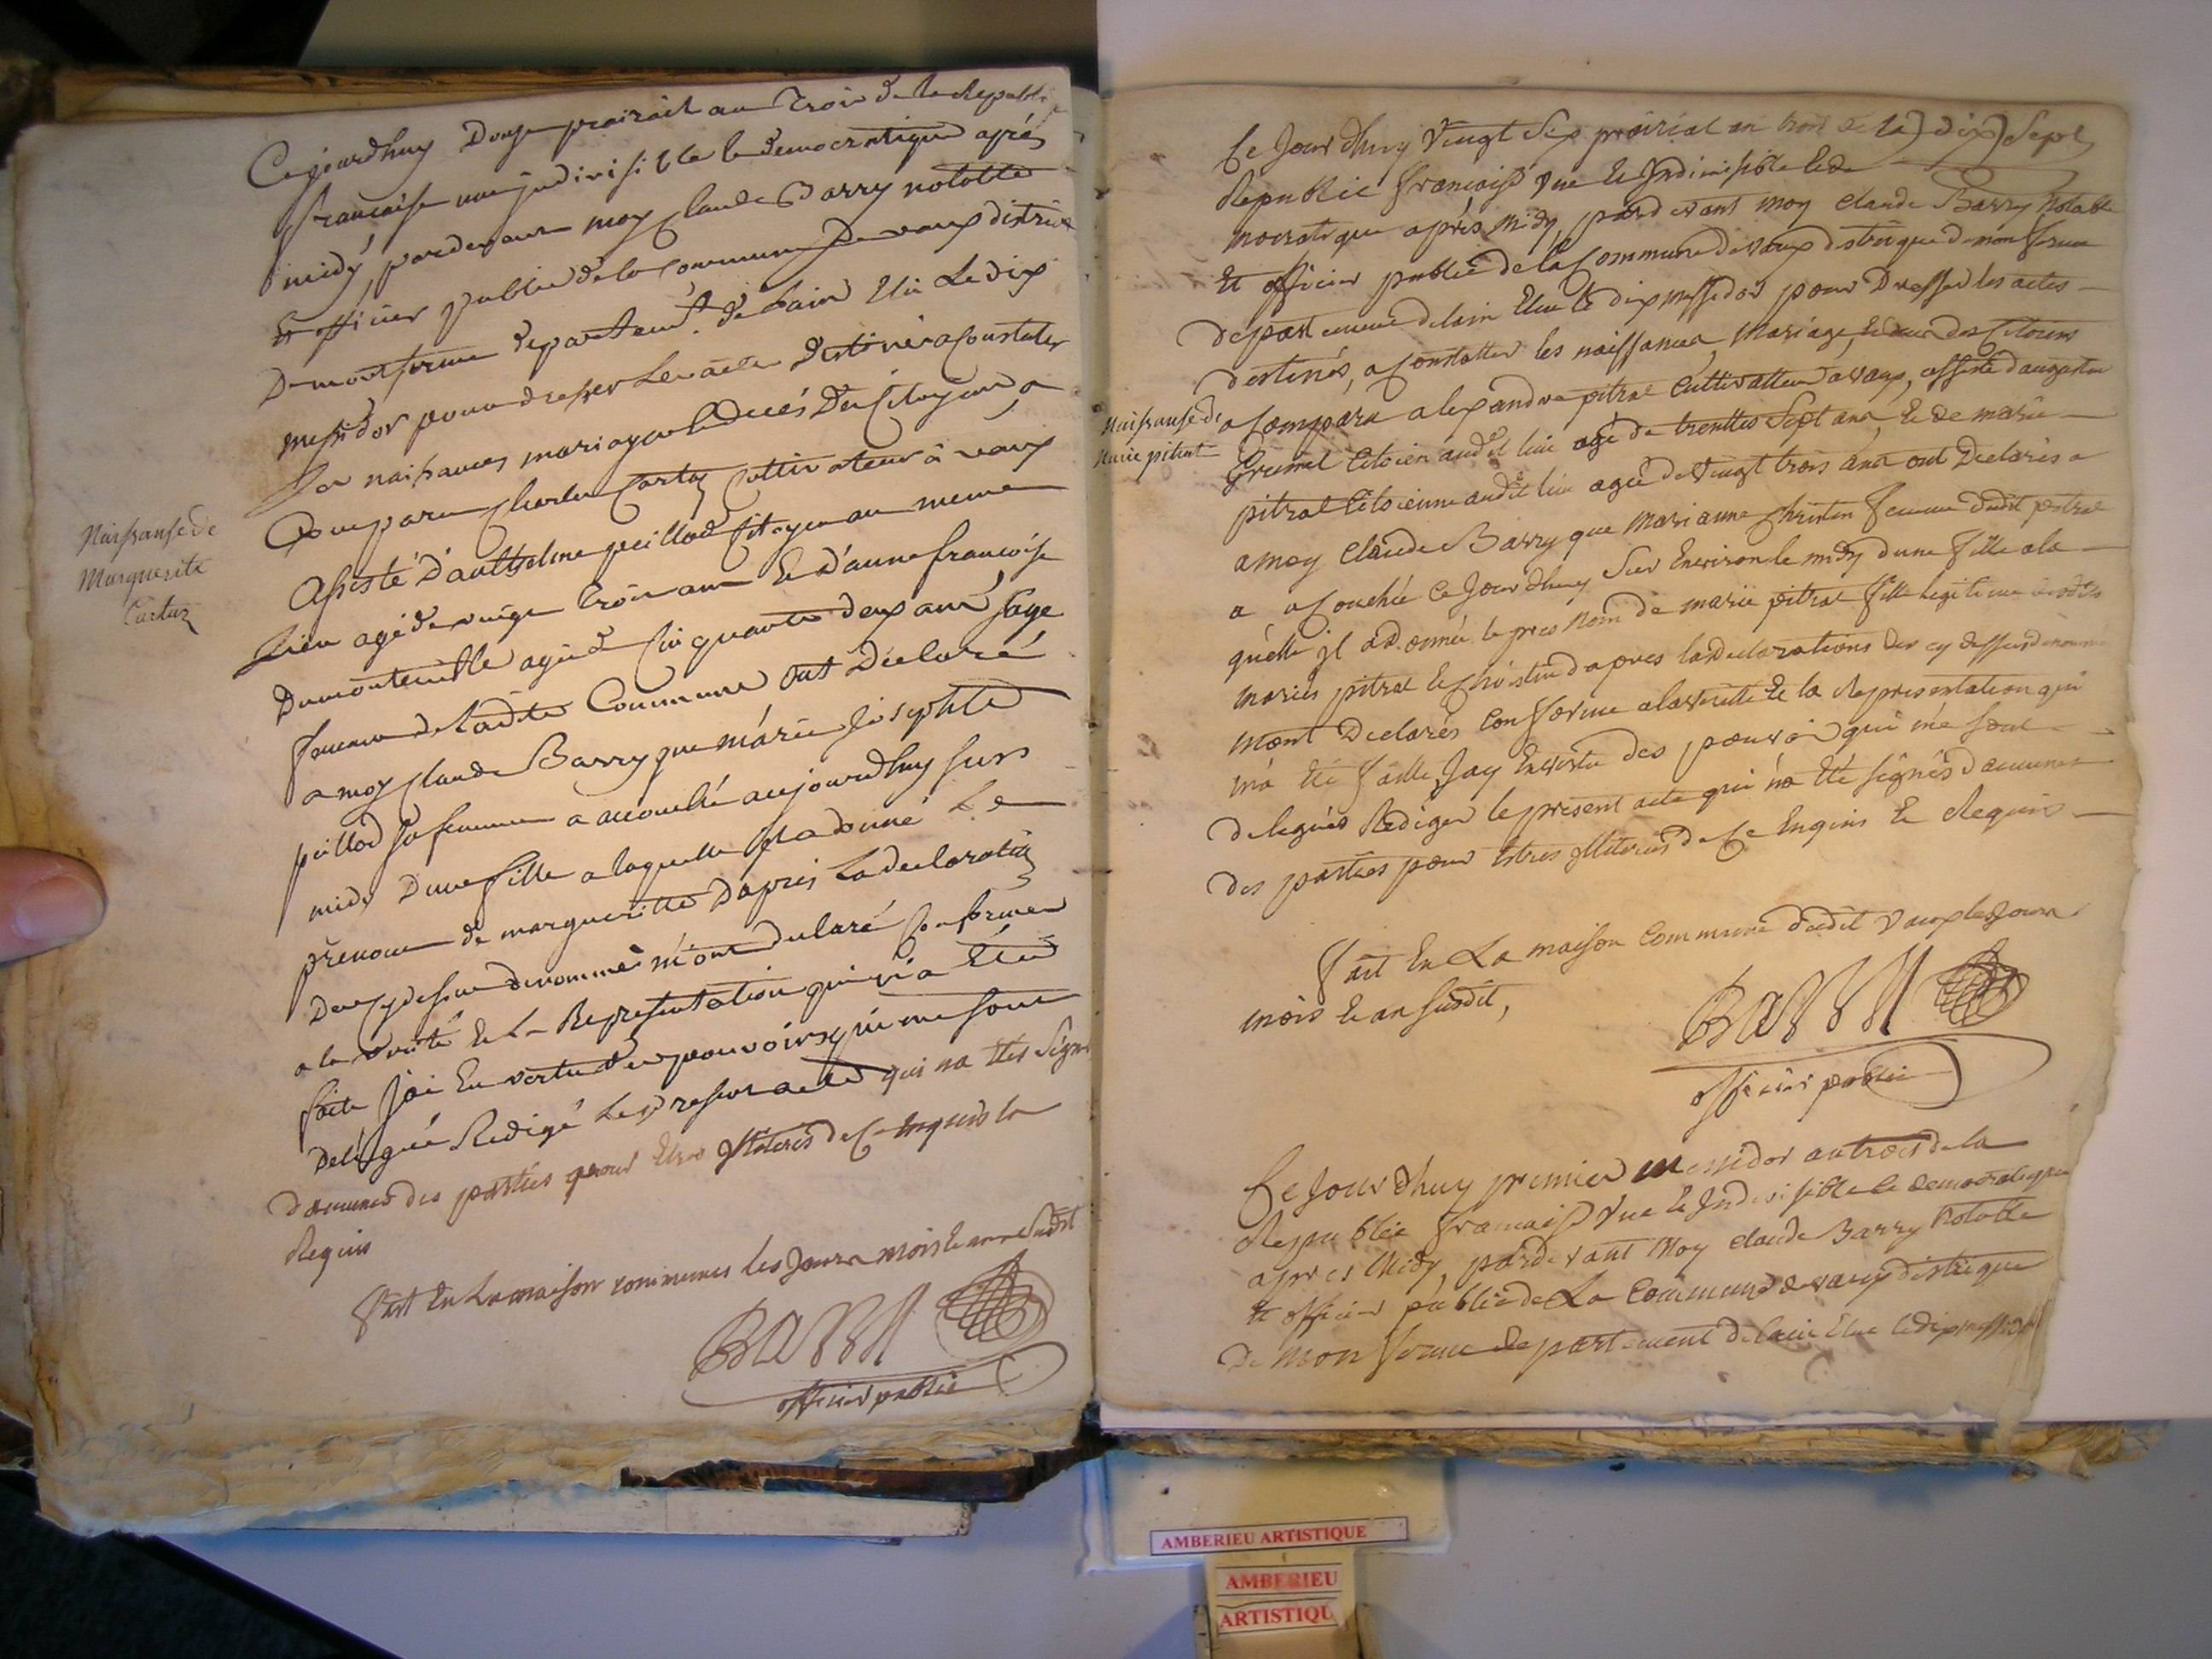 Naissanse de
Marguerite
Cartaz
Cejourdhuy Douze prairail an Trois de la Republi
francaise une jndivisible le democratique aprés
midÿ, pardevant moy claude Barry notable
Et officier public de la Commune De vaux district
De montferme departemt. de Lain Elu Le dix
messidor pour dresser Les actes Destinés a Constater
Les naissances mariages et deces Des Citoyens, a
Comparu Charles Cartaz Cultivateur à vaux
Assisté D'anthelme peillod Citoyen au meme
Lieu agé de vingt trois ans Et D'anne francoise
Dumonteuille agée de Cinquante deux ans, sage
femme de Ladite Commune ont Déclaré
a moy Claude Barry que marie Josephte
peillod sa femme a accouché aujourdhuy surs
midy D'une fille a laquelle jl a donné Le
prénom de margueritte D'aprés La declaration
Des cydessus denommés m'ont declaré Conforme
a la verité Et La Representation qui m'a Eté
faite J'ai En vertu des pouvoirs qui me sont
Delégués Redigé Le present acte qui na étés signé
daucunes des parties pour Etres jlliteres de Ce Enquis Et
Requis
Fait En La maison communes les Jours mois Et an Sudit
Barry
officier public
Naissanse de
Marie pitrat
Ce Jour dhuy Vingt Six prairial an trois de la) dix) Sept
Republic francaise Vne Et Jndivisible Et de
mocratique aprés Midy, pardevant moy claude Barry Notable
Et officier public de la Commune de vaux districque de monferme
departement delain Elue le dix messidor pour Dresser les actes
destinés, a Constatter les naissances, Mariage, Et deces des Citoiens
a Comparu alexandre pitrat Cultivatteur a vaux, assisté daugustin
Grumel Citoien audit lieu agé de trenttes Sept ans, Et de marie
pitrat Citoienne audit lieu agée de Vingt trois ans ont Declarés a
a moy Claude Barry que Marianne Christin femme dudit pitrat
a acouchée Ce Jour dhuy Sur Environ le midy dune fille a la
quelle jl a donnée le pres Nom de marie pitrat fille legitime desdits
mariés pitrat Et Christin daprès la declarations des cy dessus denommés
mont Declarés Conforme a la veritté Et la Representation qui
ma Eté faitte, Jay Envertu des pouvoir qui me sont
delegués Rediger le present acte qui na Eté signés daucunes
des parties pour Estres jlliterées de Ce Enquis Et Requis
Fait En La maison Commune dudit Vaux les Jours
mois Et an Susdit,
Barry
officier public
Ce Jour dhuy premier messidor an trois de la
Republic francaise Vne Et Jndivisible Et democratique
apres Midy, pardevant Moy claude Barry Notable
Et officier public de La Commune de vaux districque
de monferme departement delain Elue le dix messidor
AMBERIEU ARTISTIQUE
AMBERIEU
ARTISTIQU